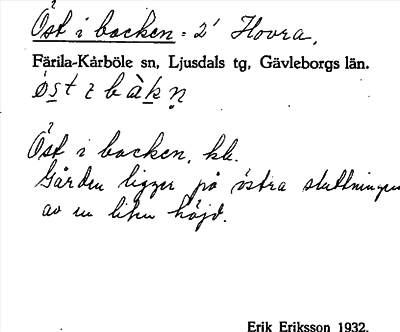 Öst i backen = 2' Hovra.
Färila-Kårböle sn, Ljusdals tg, Gävleborgs län.
Öst i backen, kb.
Gården ligger på östra sluttningen
av en liten höjd.
Erik Eriksson 1932.